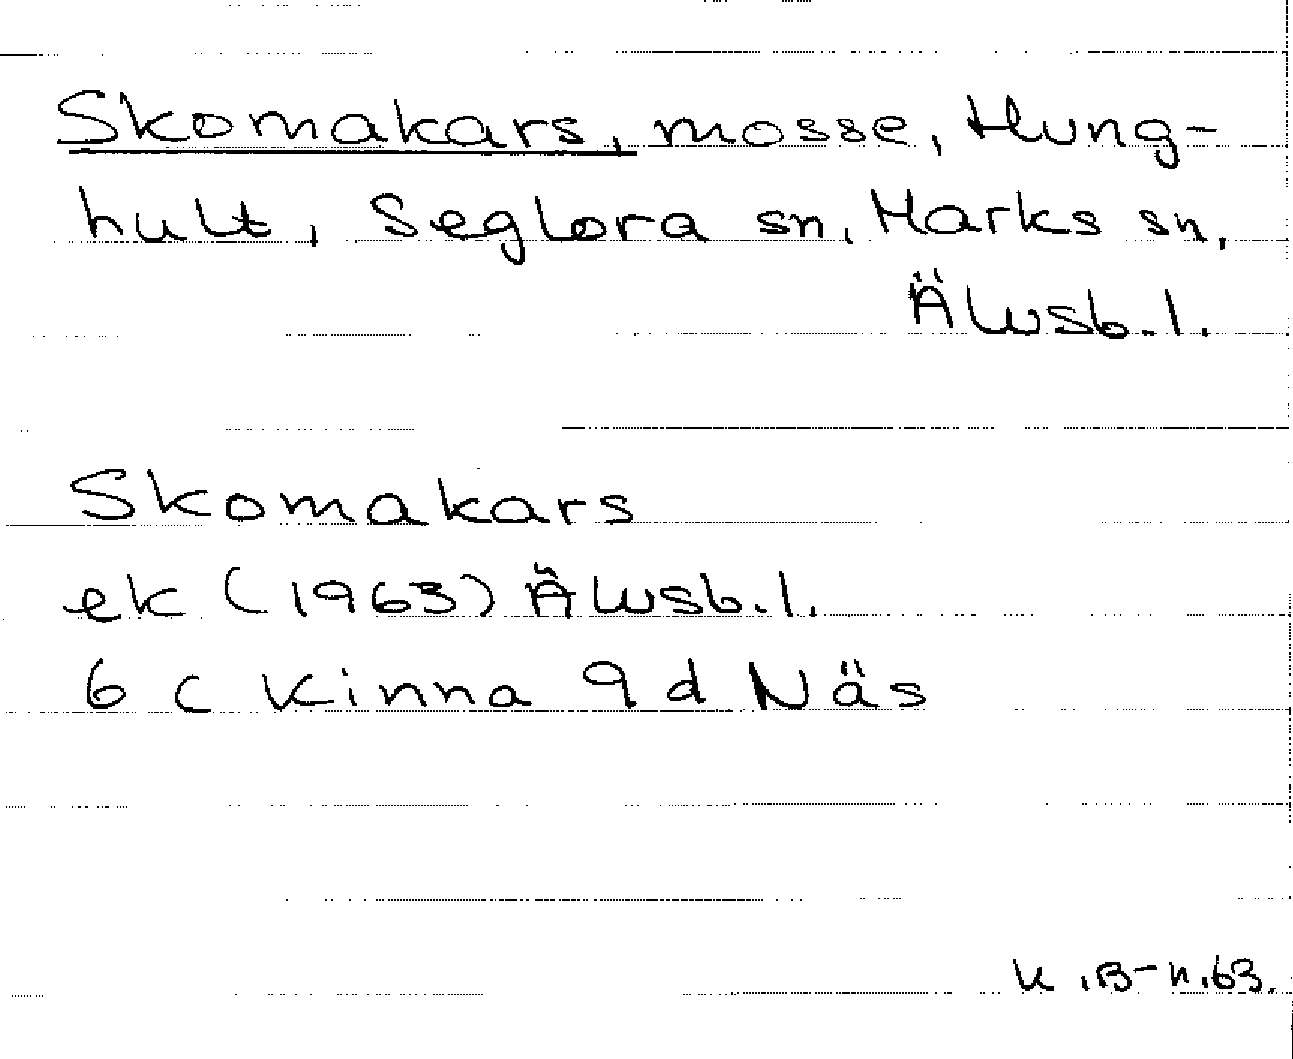 Skomakars, mosse, Hung-
hult, Seglora sn, Marks sn,
Älvsb.l.
Skomakars
ek (1963) Älvsb.l.
6 C Kinna 9 d Näs
K.B-n.63.